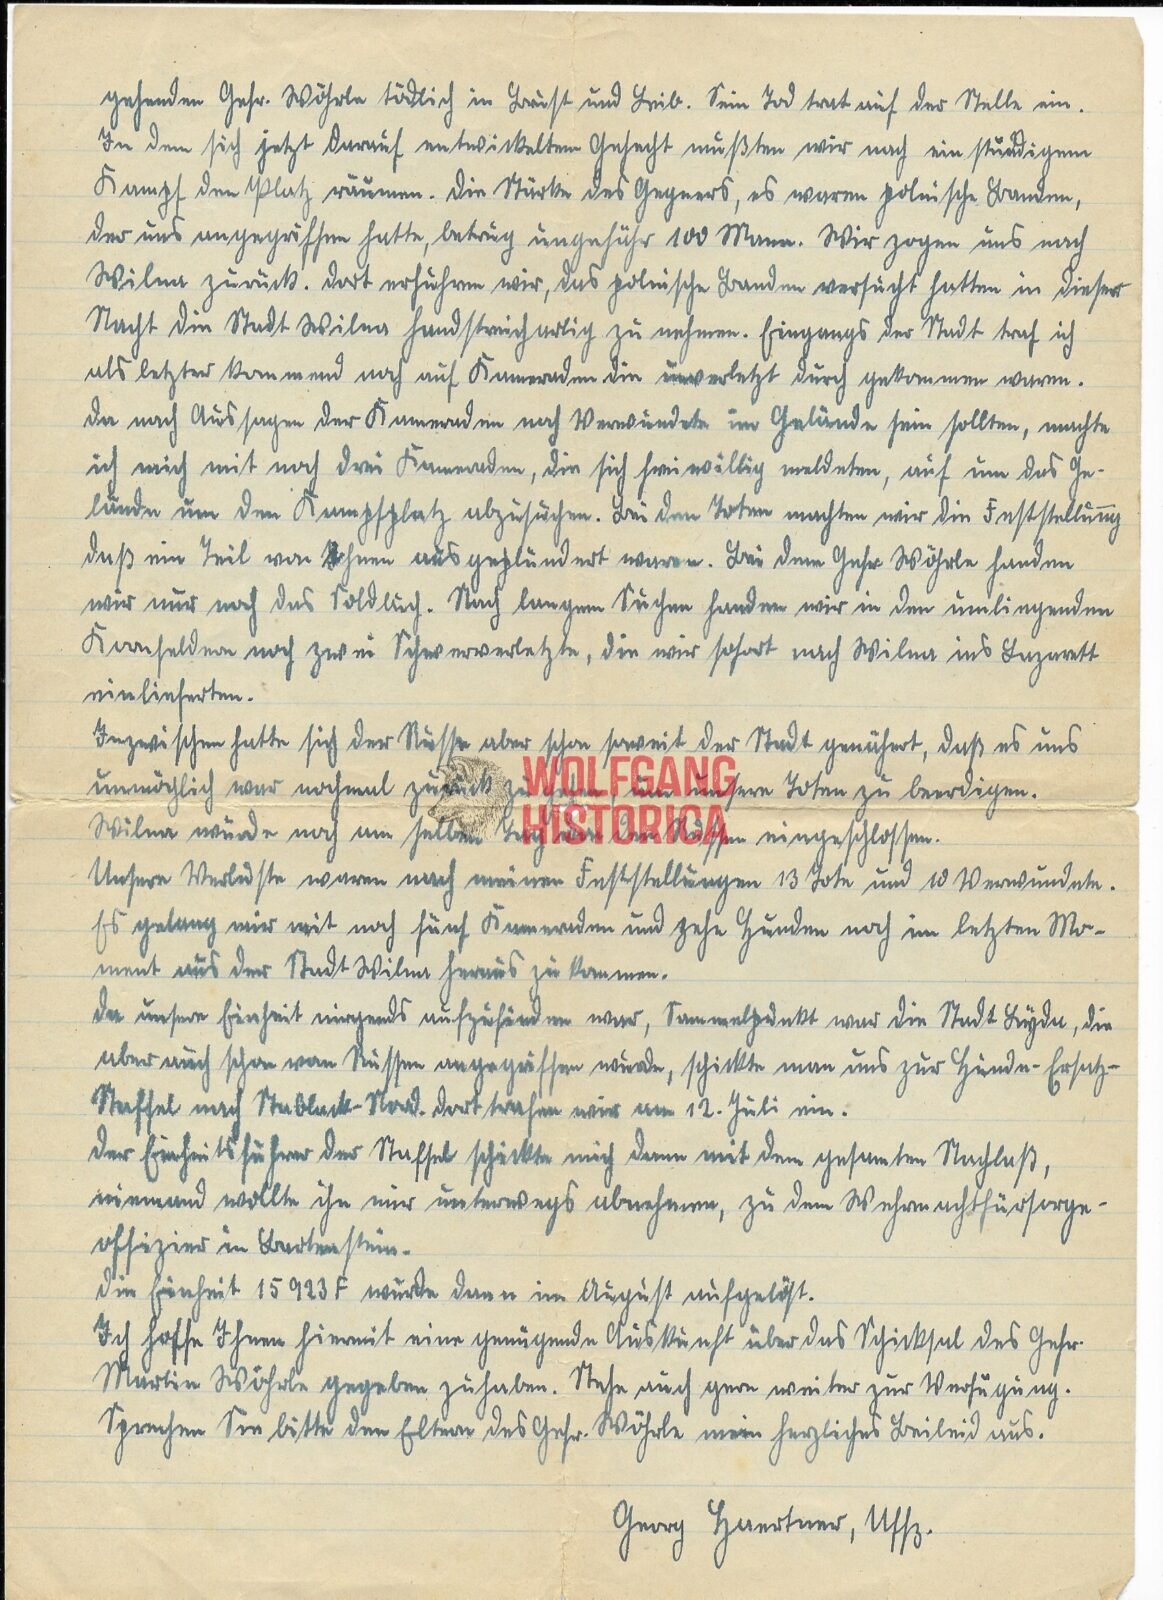 gehenden Gefr. Wöhrle tödlich in Brust und Leib. Sein Tod trat auf der Stelle ein.
In dem sich jetzt darauf entwickelten Gefecht mußten wir nach ein stündigem
Kampf den Platz räumen. Die Stärke des Gegners, es waren polnische Banden,
der uns angegriffen hatte, betrug ungefähr 100 Mann. Wir zogen uns nach
Wilna zurück. Dort erfuhren wir, das polnische Banden versucht hatten in dieser
Nacht die Stadt Wilna handstreichartig zu nehmen. Eingangs der Stadt traf ich
als letzter kommend noch auf Kameraden die unverletzt durch gekommen waren.
Da nach Aussagen der Kameraden noch Verwundete im Gelände sein sollten, machte
ich mich mit noch drei Kameraden, die sich freiwillig meldeten, auf um das Ge-
lände um den Kampfplatz abzusuchen. Bei den Toten machten wir die Feststellung
daß ein Teil von Ihnen ausgeplündert waren. Bei dem Gefr Wöhrle fanden
wir nur noch das Soldbuch. Nach langem Suchen fanden wir in den umliegenden
Kornfeldern noch zwei Schwerverletzte, die wir sofort nach Wilna ins Lazarett
einlieferten.
Inzwischen hatte sich der Russe aber schon soweit der Stadt genähert, daß es uns
unmöglich war nochmal zurück zu um unsere Toten zu beerdigen.
WOLFGANG
HISTORICA
Wilna wurde noch am selben Tag von den Russen eingeschlossen.
Unsere Verluste waren nach meinen Feststellungen 13 Tote und 10 Verwundete.
Es gelang mir mit noch fünf Kameraden und zehn Hunden noch im letzten Mo-
ment aus der Stadt Wilna heraus zu kommen.
Da unsere Einheit nirgends aufzufinden war, Sammelpunkt war die Stadt Lyda, die
aber auch schon von Russen angegriffen wurde, schickte man uns zur Hunde-Ersatz-
Staffel nach Stablack-Nord. Dort trafen wir am 12. Juli ein.
Der Einheitsführer der Staffel schickte mich dann mit dem gesamten Nachlaß,
niemand wollte ihn mir unterwegs abnehmen, zu dem Wehrmachtfürsorge-
offizier in Bartenstein.
Die Einheit 15 923 F wurde dann im August aufgelöst.
Ich hoffe Ihnen hiermit eine genügende Auskunft über das Schicksal des Gefr.
Martin Wöhrle gegeben zu haben. Stehe auch gern weiter zur Verfügung.
Sprechen Sie bitte den Eltern des Gefr. Wöhrle mein herzliches Beileid aus.
Georg Haertner, Uffz.